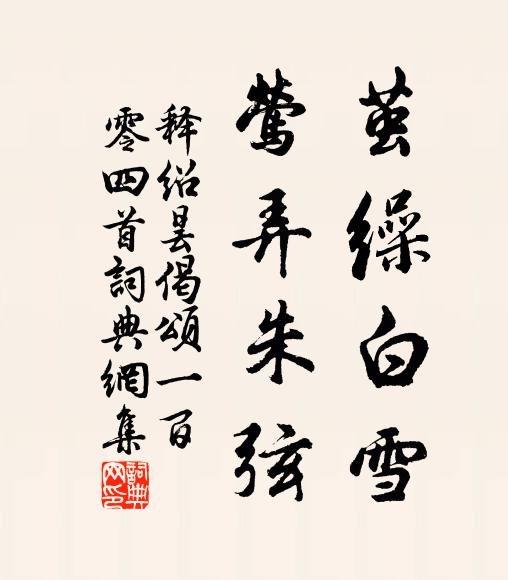 茧缲白雪
莺弄朱弦
释绍昙偈颂一百
零四首詞典網集
詞典網印